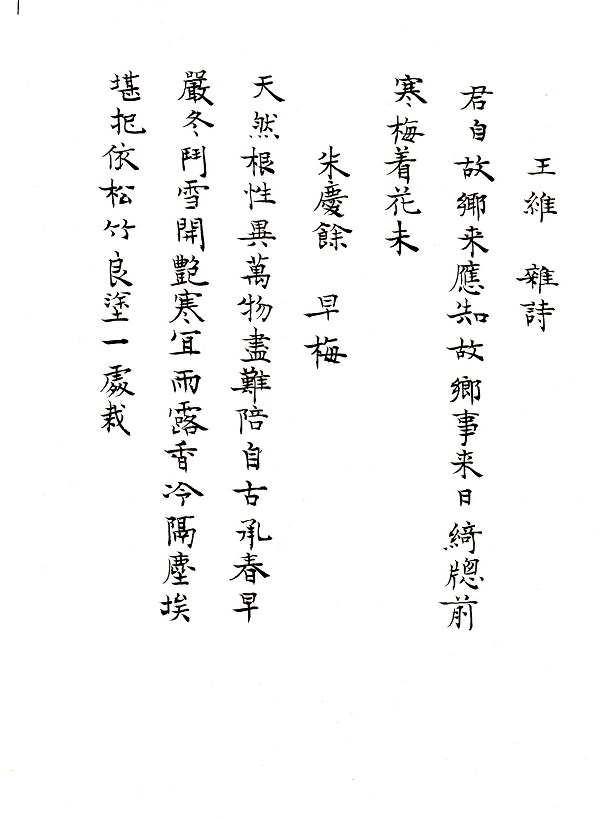 王維　雜詩
君自故鄉来應知故鄉事来日綺牕前
寒梅着花未
朱慶餘　早梅
天然根性異萬物盡難陪自古承春早
嚴冬鬥雪開艷寒冝雨露香冷隔塵埃
堪把依松竹良塗一處栽